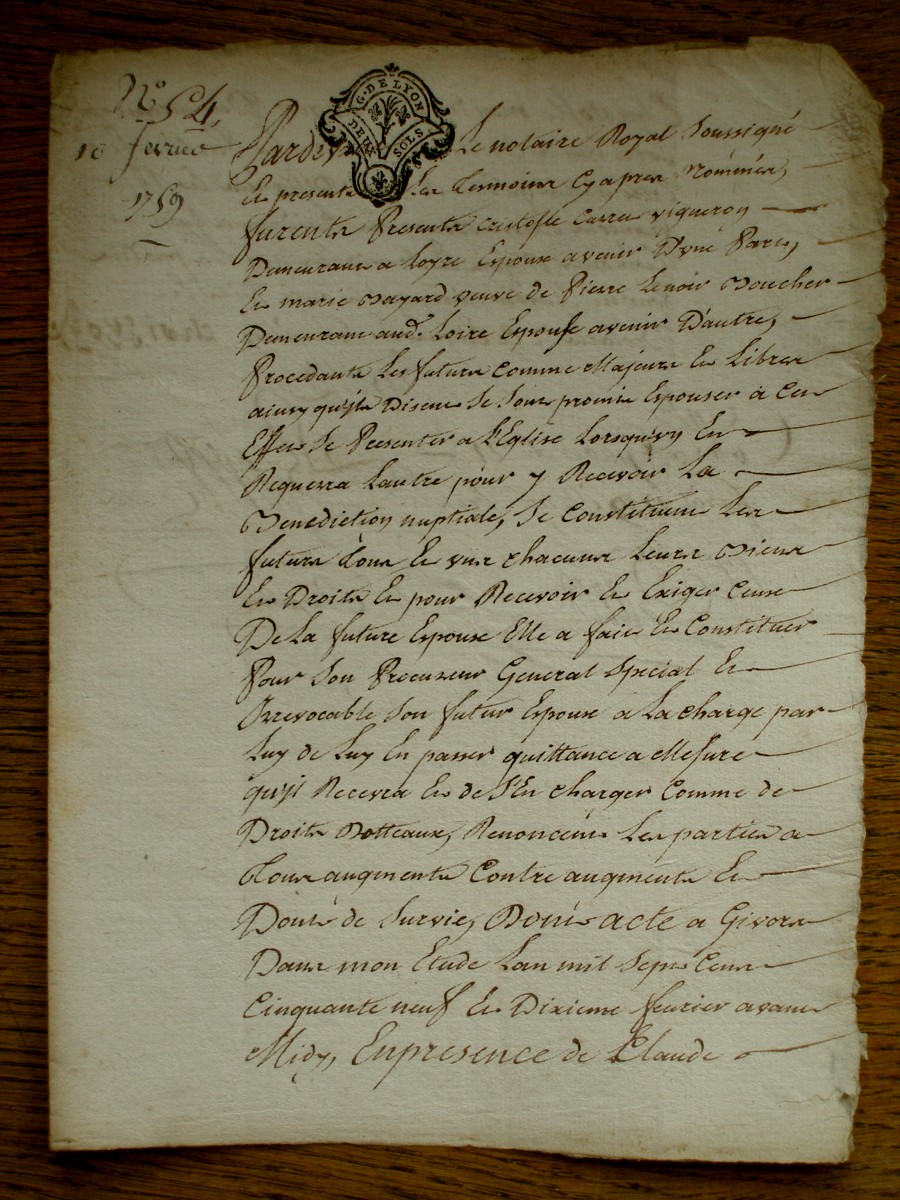 N.º 54,
10 février
1759
G. DE LYON
DEUX SOLS
Pardev le notaire Royal soussigné
Et presents les temoins cy apres nommés,
furents Presents Cristofle Carra vigneron
Demeurant a Loyre Epoux avenir D'une Part,
Et marie Bayard veuve de Pierre Lenoir Boucher
Demeurant aud. Loire Espouse avenir D'autre,
Procedants les futurs comme Majeurs Et Libres
ainsy qu'ils Disent Se Sont promis Epouser à Cet
Effet Se Presenter a l'Eglise Lorsqu'un En
Requerra Lautre pour y Recevoir La
Benediction nuptiale, Se Constituent Les
futurs tous Et uns chacuns Leurs Biens
Et Droits Et pour Recevoir Et Exiger Ceux
De La future Epouse Elle a fait Et Constitüer
Pour Son Procureur General Special Et
Irrevocable Son futur Epoux a La charge par
Luy de Luy En passer quittance a Mesure
qu'il Recevra Et de S'En charger Comme de
Droits Dotteaux, Renoncent Les parties a
Tous augments Contre augments Et
Donné de Survie, Donné acte a Givors
Dans mon Etude Lan mil Sept Cent
Cinquante neuf Et Dixieme fevrier avant
Midy, En presence de Claude